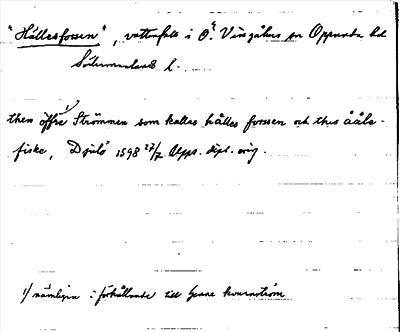 "Hållesforsen", vattenfall i Ö. Vingåkers sn Oppunda hd
Södermanlands l.
then öffre 1) Strömmen som kallas hålles forssen och thes ååle-
fiske, Djulö 1598 27/7 Upps. dipl. orig.
1) nämligen i förhållande till henne kvarnström